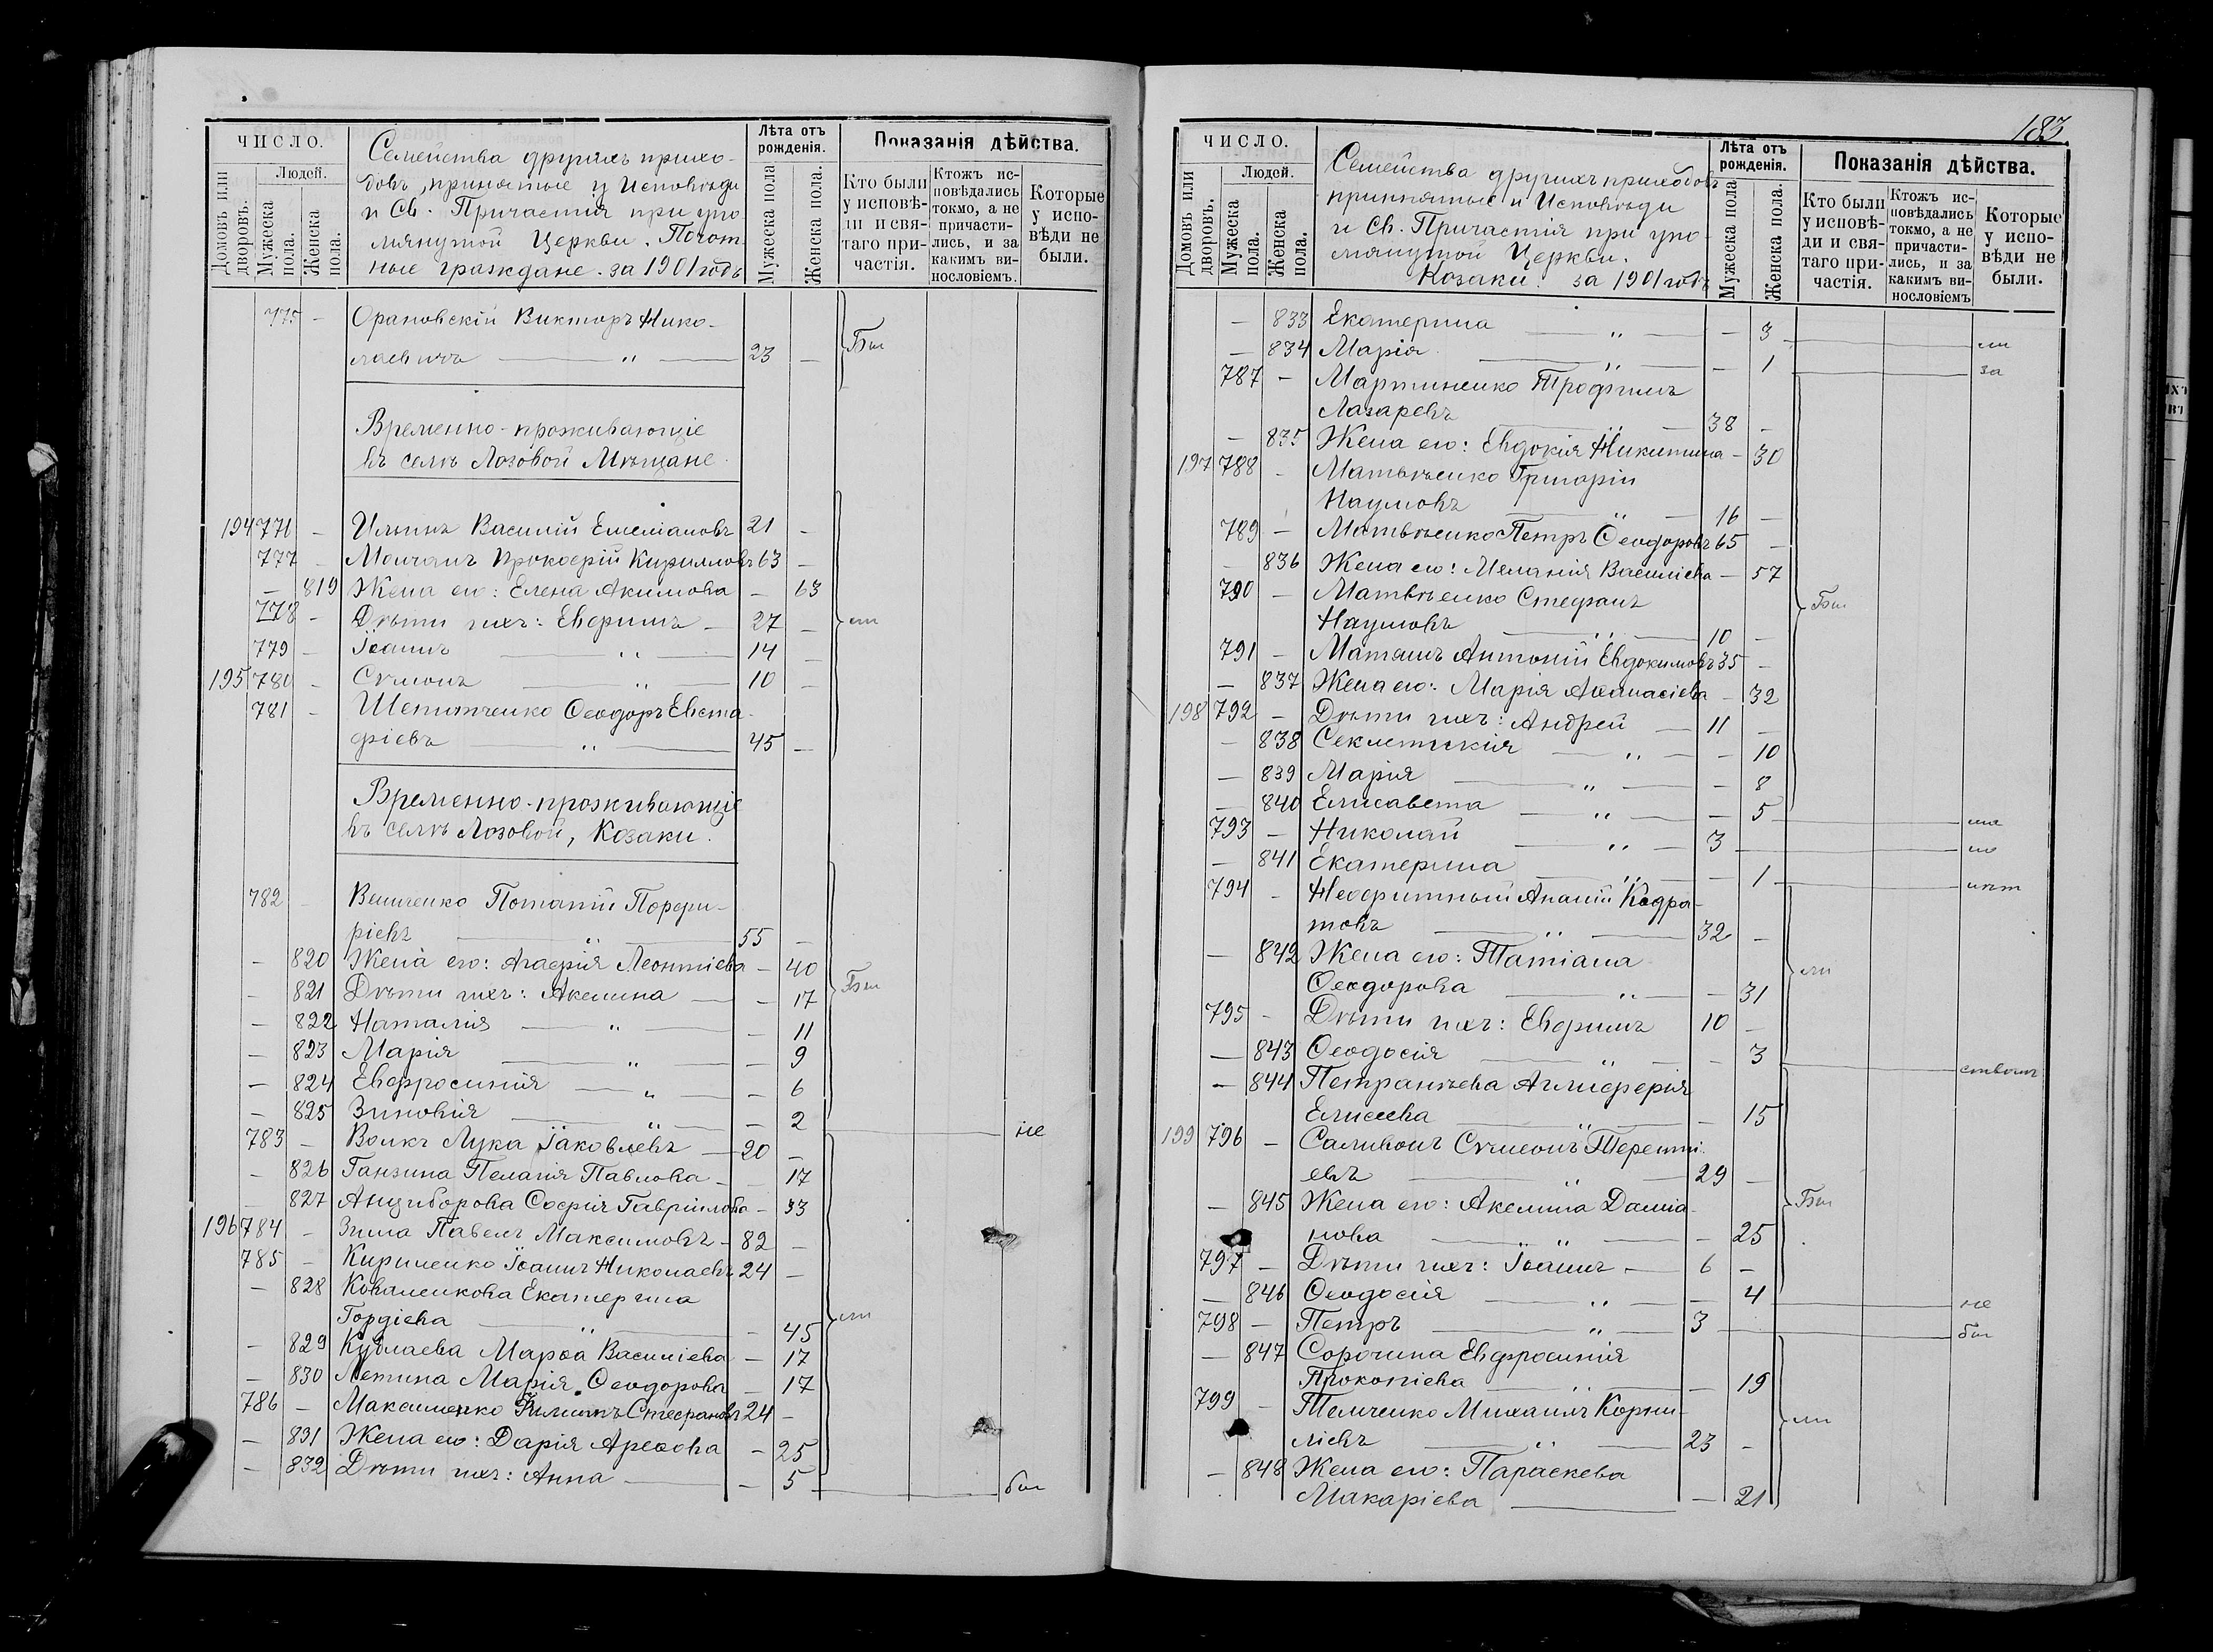 ЧИСЛО.
Людей.
Домовъ или дворовъ.
Мужеска пола.
Женска пола.
Семейства другихъ прихо-
довъ, принятые у Исповѣди
и Св. Причастія при упо-
мянутой Церкви. Почот-
ные граждане. за 1901 годъ
Лѣта отъ рожденія.
Мужеска пола
Женска пола.
Показанія дѣйства.
Кто были у исповѣ-ди и свя-таго при-частія.
Ктожъ ис-повѣдались токмо, а не причасти-лись, и за какимъ ви-нословіемъ.
Которые у испо-вѣди не были.
775 — Орановскій Викторъ Нико-
лаевичъ — „ — 23 — Бы
Временно-проживающіе
въ селѣ Лозовой Мѣщане.
194 771 — Ильинъ Василій Емеліановъ 21 —
777 — Молчанъ Прокофій Кирилловъ 63 —
— 819 Жена его: Елена Акимова — 63
778 — Дѣти ихъ: Евфимъ — 27 — ли
779 — Іоаннъ — „ — 14 —
195 780 — Сѵмеонъ — „ — 10 —
781 — Шепитченко Ѳеодоръ Евста-
фіевъ — „ — 45 —
Временно-проживающіе
въ селѣ Лозовой, Козаки.
782 — Величенко Потапій Порфи-
ріевъ — „ — 55 —
— 820 Жена его: Агафія Леонтіева — 40
— 821 Дѣти ихъ: Акелина — — 17 Бы
— 822 Наталія — „ — — 11
— 823 Марія — „ — — 9
— 824 Евфросинія — „ — — 6
— 825 Зиновія — „ — — 2
не
783 — Волкъ Лука Іаковлевъ — 20 —
— 826 Ганзина Пелагія Павлова — — 17
— 827 Анциборова Софія Гавріилова — 33
196 784 — Зима Павелъ Максимовъ — 82 —
785 — Кириленко Іоаннъ Николаевъ 24 —
— 828 Коваленкова Екатерина
Гордіева — „ — — 45 ли
— 829 Кублаева Марѳа Василіева — 17
— 830 Летина Марія Ѳеодорова — 17
786 — Максименко Филиппъ Стефановъ 24 —
— 831 Жена его: Дарія Арефова — 25
— 832 Дѣти ихъ: Анна — — 5 был
183
ЧИСЛО.
Людей.
Домовъ или дворовъ.
Мужеска пола.
Женска пола.
Семейства другихъ приходовъ
принятые и Исповѣди
и Св. Причастія при упо-
мянутой Церкви.
Козаки. за 1901 годъ
Лѣта отъ рожденія.
Мужеска пола
Женска пола.
Показанія дѣйства.
Кто были у исповѣ-ди и свя-таго при-частія.
Ктожъ ис-повѣдались токмо, а не причасти-лись, и за какимъ ви-нословіемъ
Которые у испо-вѣди не были.
— 833 Екатерина — „ — — 3 ли
— 834 Марія — „ — — 1 за
787 — Мартиненко Трофимъ
Лазаревъ — „ — 38 —
— 835 Жена его: Евдокія Никитина — 30
197 788 — Матвѣенко Григорій
Наумовъ — „ — 16 —
789 — Матвѣенко Петръ Ѳеодоровъ 65 —
— 836 Жена его: Меланія Василіева — 57
790 — Матвѣенко Стефанъ Бы
Наумовъ — „ — 10 —
791 — Маташъ Антоній Евдокимовъ 35 —
— 837 Жена его: Марія Аѳанасіева — 32
198 792 — Дѣти ихъ: Андрей — 11 —
— 838 Секлетикія — „ — — 10
— 839 Марія — „ — — 8
— 840 Елисавета — „ — — 5
793 — Николай — „ — 3
— 841 Екатерина — „ — — 1
794 — Невфитный Ананій Кодра-
товъ — „ — 32 —
— 842 Жена его: Татіана
Ѳеодорова — „ — — 31 ли
795 — Дѣти ихъ: Евфимъ 10 —
— 843 Ѳеодосія — „ — — 3
— 844 Петраніева Агліеферія
Елисеева — „ — — 15
199 796 — Саливонъ Сѵмеонъ Терентi-
евъ — „ — 29 —
— 845 Жена его: Акелина Даміа- Бы
нова — „ — — 25
797 — Дѣти ихъ: Іоаннъ — 6 —
— 846 Ѳеодосія — „ — — 4 не
798 — Петръ — „ — 3 был
— 847 Сорочина Евфросинія
Прокопіева — „ — — 19
799 — Темченко Михаилъ Корни-
ліевъ — „ — 23 — ли
— 848 Жена его: Параскева
Макаріева — — 21